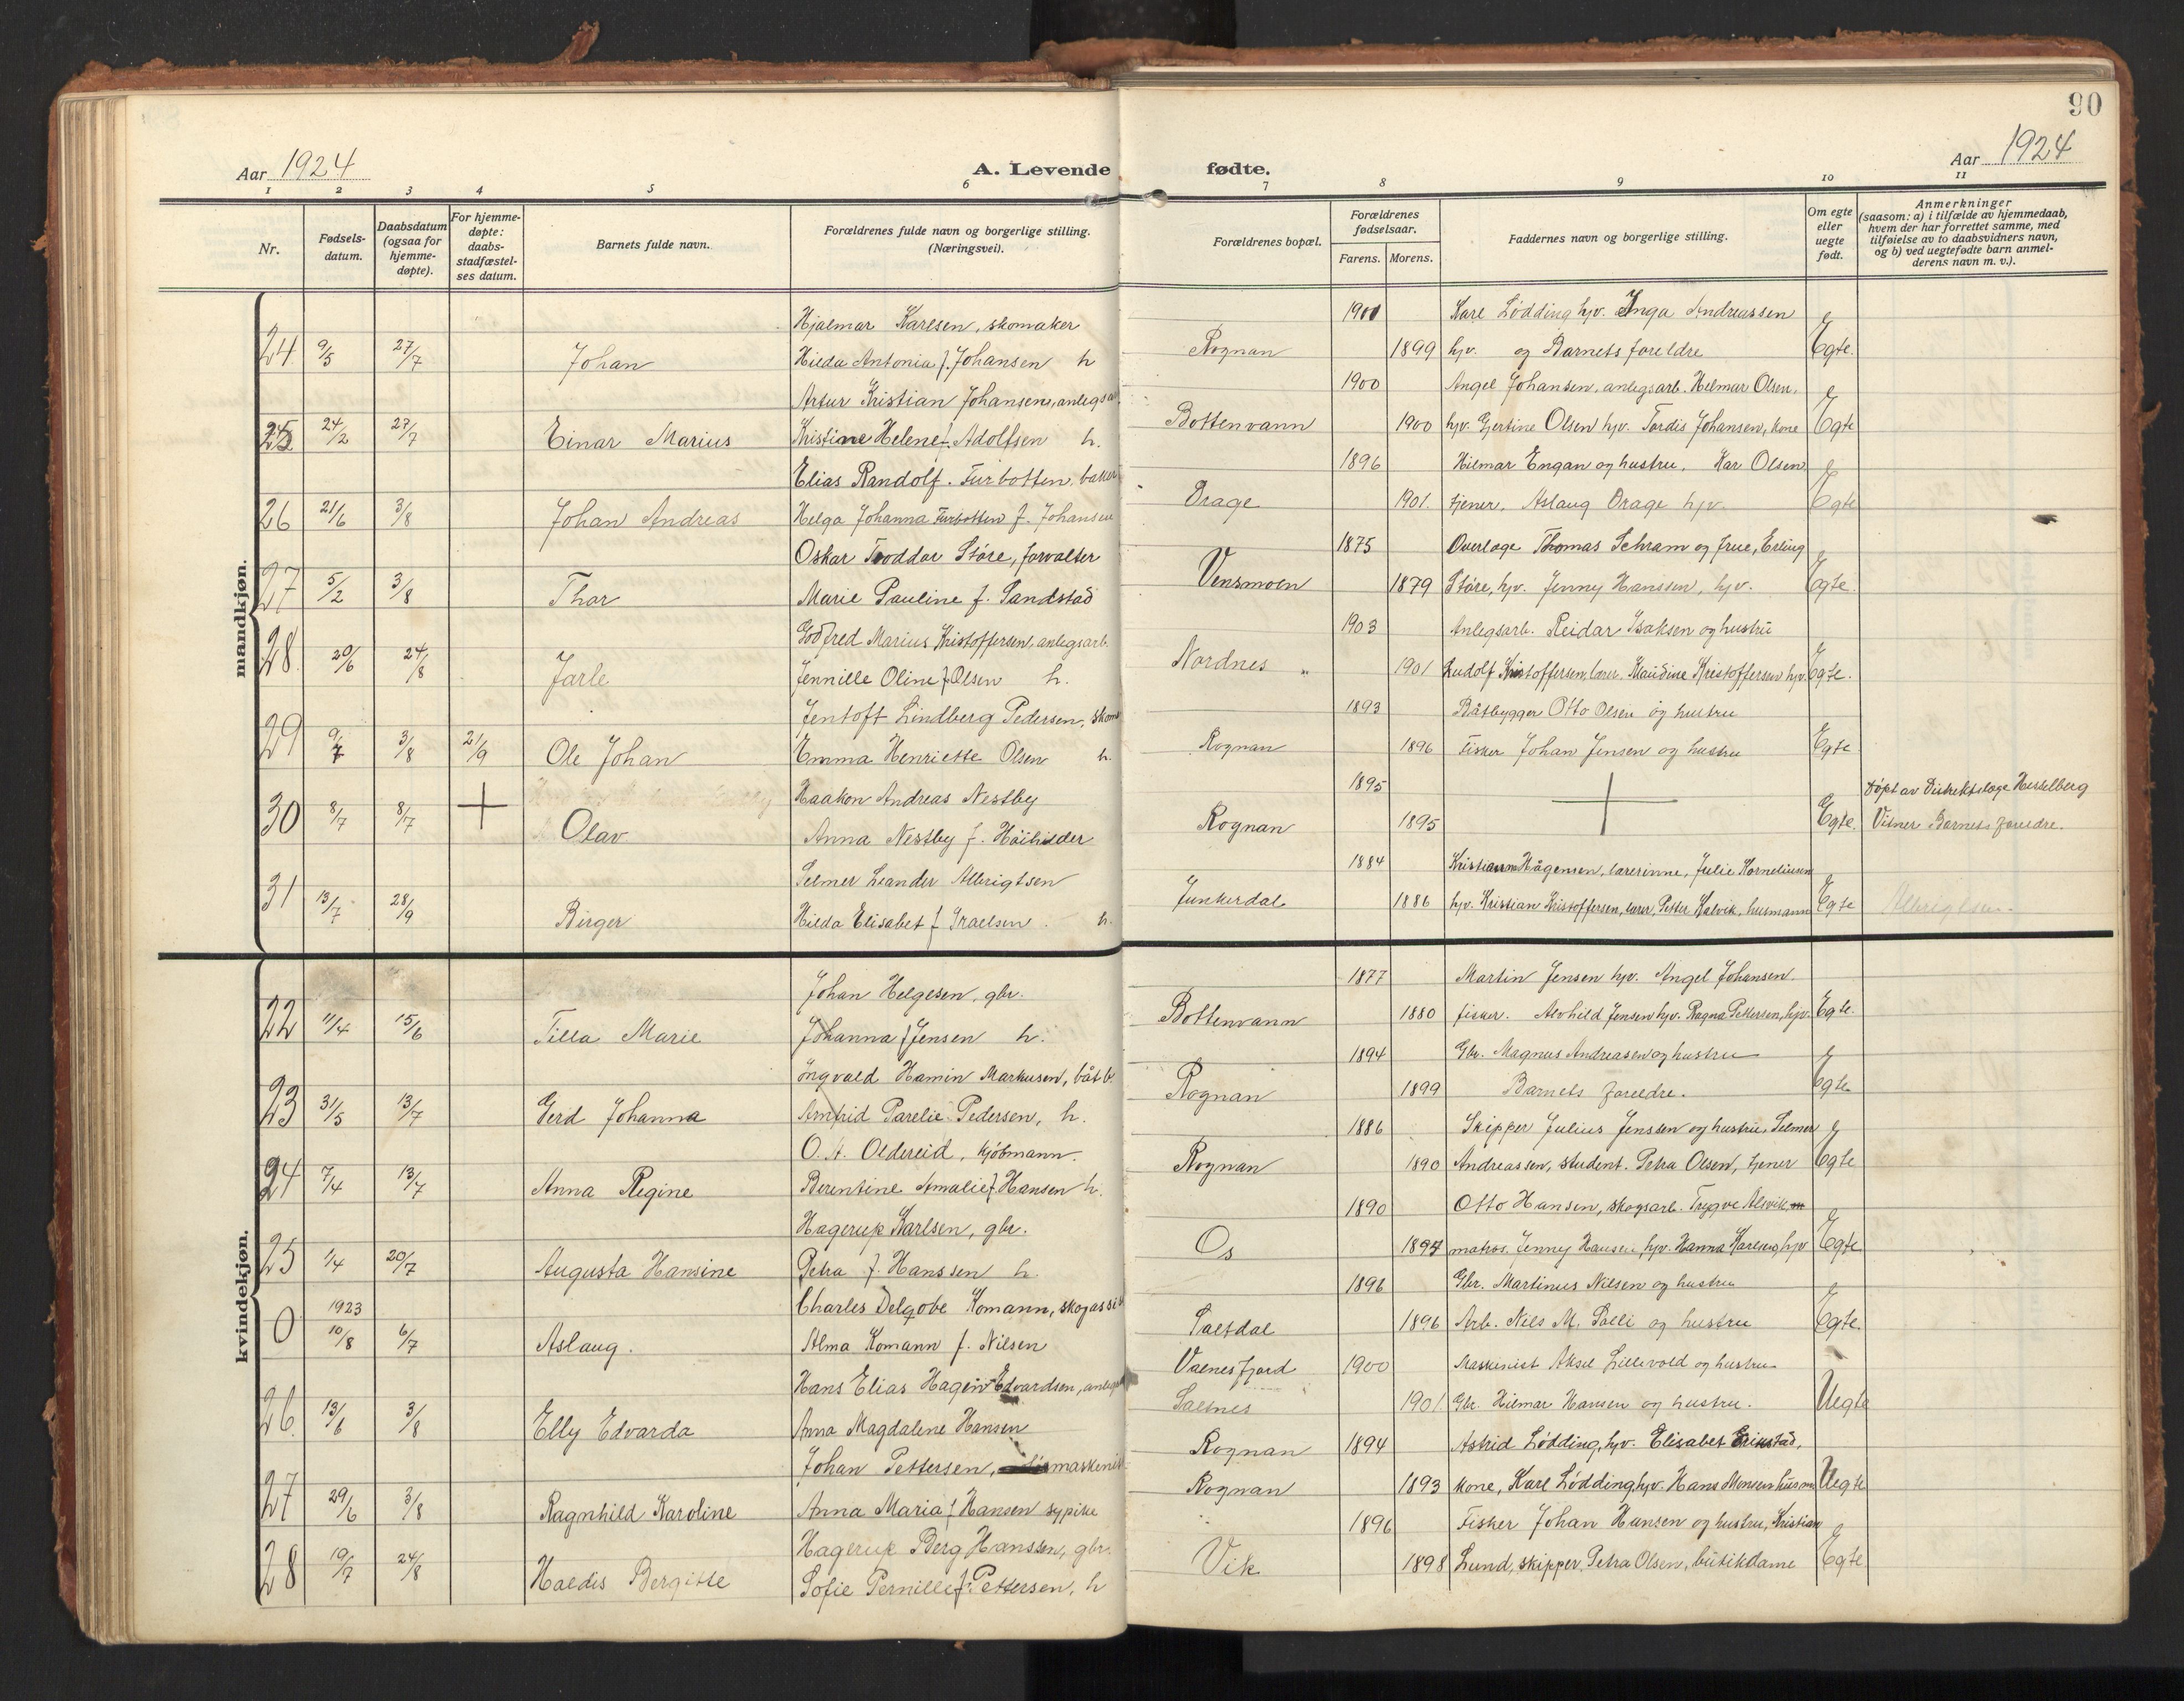 90
Aar 1924
A. Levende fødte.
Aar 1924
1 2 3 4 5 6 7 8 9 10 11
Nr.
Fødsels-
datum.
Daabsdatum
(ogsaa for
hjemme-
døpte).
For hjemme-
døpte:
daabs-
stadfæstel-
ses datum.
Barnets fulde navn.
Forældrenes fulde navn og borgerlige stilling.
(Næringsvei).
Forældrenes bopæl.
Forældrenes
fødselsaar.
Farens. Morens.
Faddernes navn og borgerlige stilling.
Om egte
eller
uegte
født.
Anmerkninger
(saasom: a) i tilfælde av hjemmedaab,
hvem der har forrettet samme, med
tilføielse av to daabsvidners navn,
og b) ved uegtefødte barn anmel-
derens navn m. v.).
mandkjøn.
Hjalmar Karlsen, skomaker 1900 Kare Lødding hjv. Inga Andreassen
24 9/5 27/7 Johan Hilda Antonia f. Johansen h Rognan 1899 hjv. og Barnets foreldre Egte.
Artur Kristian Johansen, anlegsa 1900 Angel Johansen, anlegsarb. Hilmar Olsen,
25 24/2 27/7 Einar Marius Kristine Helene f. Adolfsen h. Bottenvann 1900 hjv. Gjertine Olsen hjv. Tordis Johansen, kone Egte
Elias Randolf. Furbotten, baker 1896 Hilmar Engan og hustru. Kar Olsen
26 21/6 3/8 Johan Andreas Helga Johanna Furbotten f. Johansen Drage 1901. tjener. Aslaug Drage hjv. Egte
Oskar Toddar Støre, forvalter 1875 Overlæge Thomas Schram og frue, Erling
27 5/2 3/8 Thor Marie Pauline f. Sandstad Vensmoen 1879 Støre, hjv. Jenny Hanssen, hjv. Egte.
Godfred Marius Kristoffersen, anlegsarb. 1903 Anlegsarb. Reidar Isaksen og hustru
28 20/6 24/8 Jarle Jennille Oline f. Olsen h. Nordnes 1901 Ludolf Kristoffersen, lærer. Maudine Kristoffersen hjv. Egte.
Jentoft Lindberg Pedersen, skom 1893 Båtbygger Otto Olsen og hustru
29 9/7 3/8 21/9 Ole Johan Emma Henriette Olsen h. Rognan 1896 Fisker Johan Jensen og hustru Egte
Haakon Andreas Nestby 1895 døpt av Distriktslæge Hesselberg
30 8/7 8/7 + Olav Anna Nestby f. Høihilder Rognan 1895 + Egte. Vitner Barnets foreldre.
Selmer Leander Albrigtsen 1884 Kristianna Hågensen, lærerinne, Julie Korneliusen
31 13/7 28/9 Birger Hilda Elisabet f. Israelsen h. Junkerdal 1886 hjv. Kristian Kristoffersen, lærer, Petter Kalvik, husmann Egte Albrigtsen.
kvindekjøn.
Johan Helgesen, gbr. 1877 Martin Jensen hjv. Angel Johansen.
22 11/4 15/6 Tilla Marie Johanna f. Jensen h. Bottenvann 1880 fisker. Alvhild Jensen hjv. Ragna Pettersen, hjv. Egte.
Ingvald Hamin Markusen, båtb. 1894 Gbr. Magnus Andreasen og hustru
23 31/5 13/7 Gerd Johanna Arnfrid Parelie Pedersen, h. Rognan 1899 Barnets foreldre. Egte
O. A. Oldereid, kjøbmann. 1886 Skipper Julius Jenssen og hustru, Selmer
24 7/4 13/7 Anna Regine Berentine Amalie f. Hansen h. Rognan 1890 Andreassen, student. Petra Olsen, tjener Egte
Hagerup Karlsen, gbr. 1890 Otto Hansen, skogsarb. Trygve Alsvik
25 1/4 20/7 Augusta Hansine Petra f. Hanssen h. Os 1897 matros. Jenny Hansen, hjv. Hanna Karlsen, hjv Egte
1923 Charles Delgobe Komann, skogassis 1896 Gbr. Martinus Nilsen og hustru
0 10/8 6/7 Aslaug. Alma Komann f. Nilsen Saltdal 1896 Arb. Nils M. Sælli og hustru Egte.
Hans Elias Hagen Edvardsen, anlegs Valnesfjord 1900 Maskinist Aksel Lillevold og hustru
26. 13/6 3/8 Elly Edvarda Anna Magdalene Hansen Saltnes 1901 Gbr. Hilmar Hansen og hustru. Uegte
Johan Pettersen, maskinist Rognan 1894 Astrid Lødding, hjv. Elisabet Erikstad,
27 29/6 3/8 Ragnhild Karoline Anna Maria f. Hansen sypike Rognan 1893 kone, Karl Lødding hjv. Hans Monsen husm Uegte
Hagerup Berg Hanssen, gbr. 1896 Fisker Johan Hansen og hustru, Kristian
28 19/7 24/8 Haldis Bergitte Sofie Pernille f. Pettersen, h Vik 1898 Lund, skipper. Petra Olsen, butikdame Egte